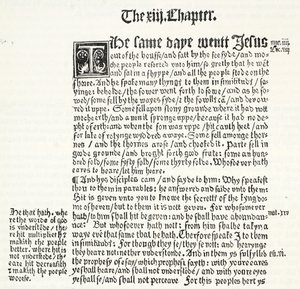 The xiij. Chapter.
The same daye went Jesus
out of the housse/ and sat by the see syde/ and mo-
che people resorted vnto him/ so gretly that he went
and sat in a shyppe/ and all the people stode on the
shoore. And he spake many thynges to them in similitudes/ sa-
yinge: beholde/ the sower went forth to sowe/ and as he so-
wed/ some fell by the wayes syde/ the fowlles ca/ and devou-
red it vppe. Some fell apon stony grounde where it had not
moche erth/ and a non it spronge vppe/ because it had no dep-
ht of erth: and when the son was vppe/ hit cauth heet/ and
for lake of rotynge wyddred awaye. Some fell amonge thor-
nes/ and the thornes arose/ and chooked it. Parte fell in
gode grounde/ and broght forth good frute: some an hun-
dred fold/ some fyfty fold/ some thyrty folde. Whosoever hath
eares to heare/ let him heare.
And hys disciples cam/ and sayde to him: Why speakest
thou to them in parables: he answered and saide vnto them:
Hit is geven vnto you to knowe the secrettes of the kyngdo-
me of heven/ but to them it is not geven. For whosoever
hath/ to him shall hit be geven: and he shall have aboundan-
ce: But whosoever hath not: from him shalbe takyn a
waye eve that same that he hath. Therfore speake I to them
in similitudes: For though they se/ they se not: and hearynge
they heare not: nether vnderstonde. And in them ys fulfylled
the prophesy of esay/ which prophesi sayth: with youre eares
ye shall heare/ and shall not vnderstonde/ and with youre eyes
ye shall se/ and shall not perceave. For this peoples hert ys
He that hath, whe
re the worde of god
is vnderstode/ the-
re hit multiplieth &
makith the people
better. where hit is
not vnderstode/ th-
eare hit decreasith
& makith the people
worsse.